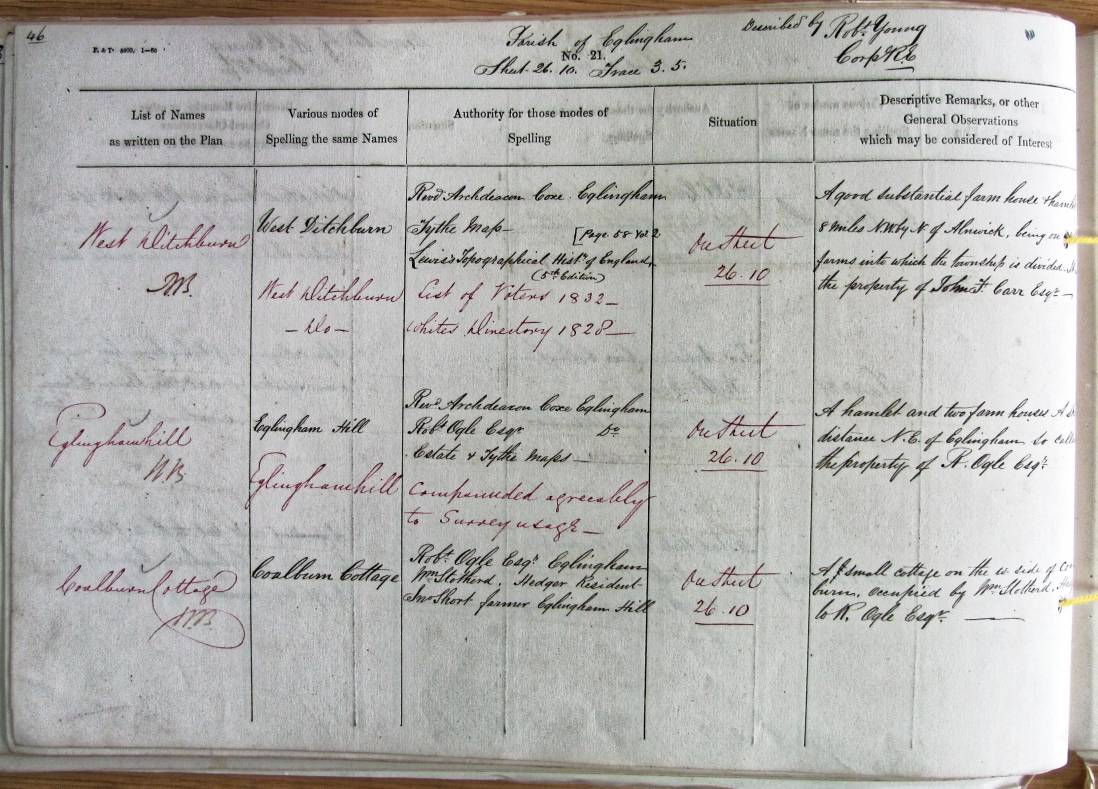 46
Parish of Eglingham
Described by Robt Young
Corpl R.E
No. 21.
Sheet 26. 10. Trace 3. 5.
List of Names
as written on the Plan
Various modes of
Spelling the same Names
Authority for those modes of
Spelling
Situation
Descriptive Remarks, or other
General Observations
which may be considered of Interest
West Ditchburn
West Ditchburn
West Ditchburn
— Do —
Revd Archdeacon Coxe Eglingham
Tythe Map —
[Page 58 Vol 2
Lewis's Topographical Histy of England,
(5th Edition)
List of Voters 1832 —
Whites Directory 1828 —
On Sheet
26.10
A good substantial farm house &
8 Miles N.W. by N of Alnwick, being
farms into which the township is divided
the property of John J. Carr Esqr —
Eglinghamhill
Eglingham Hill
Eglinghamhill
Revd Archdeacon Coxe Eglingham
Robt Ogle Esqr Do
Estate & Tythe Maps —
Compounded agreeably
to Survey usage —
On Sheet
26.10
A hamlet and two farm houses A
distance N.E. of Eglingham so
the property of R. Ogle Esqr
Coalburn Cottage
Coalburn Cottage
Robt Ogle Esqr Eglingham
Wm Stotherd, Hedger Resident
Jno Short farmer Eglingham Hill
On Sheet
26.10
A small cottage on the w. side of
burn, occupied by Wm Stotherd,
to R. Ogle Esqr —